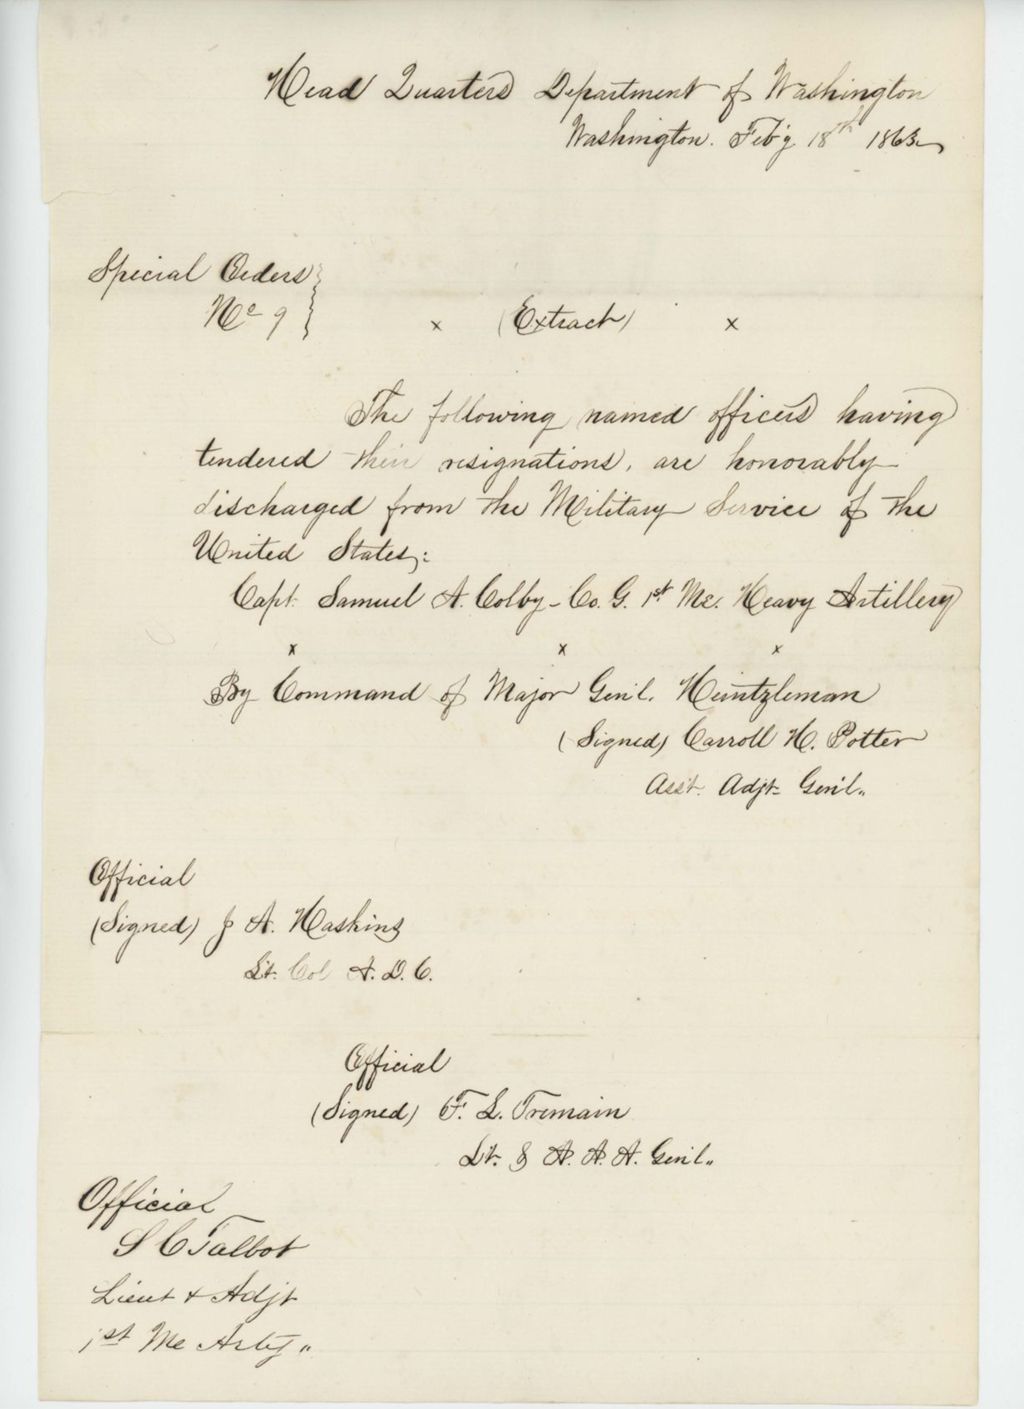 Head Quarters Department of Washington
Washington. Feb'y 18th 1863
Special Orders
No 9
x (Extract) x
The following named officers having
tendered their resignations, are honorably
discharged from the Military Service of the
United States,:
Capt. Samuel A. Colby - Co. G. 1st Me. Heavy Artillery
x x x
By Command of Major Gen'l. Heintzleman
(Signed) Carroll H. Potter
Asst. Adjt. Gen'l.
Official
(Signed) J A. Haskins
Lt. Col A. D. C.
Official
(Signed) F. L. Tremain
Lt. & A. A. A. Gen'l.
Official
S C Talbot
Lieut + Adjt
1st Me Arty